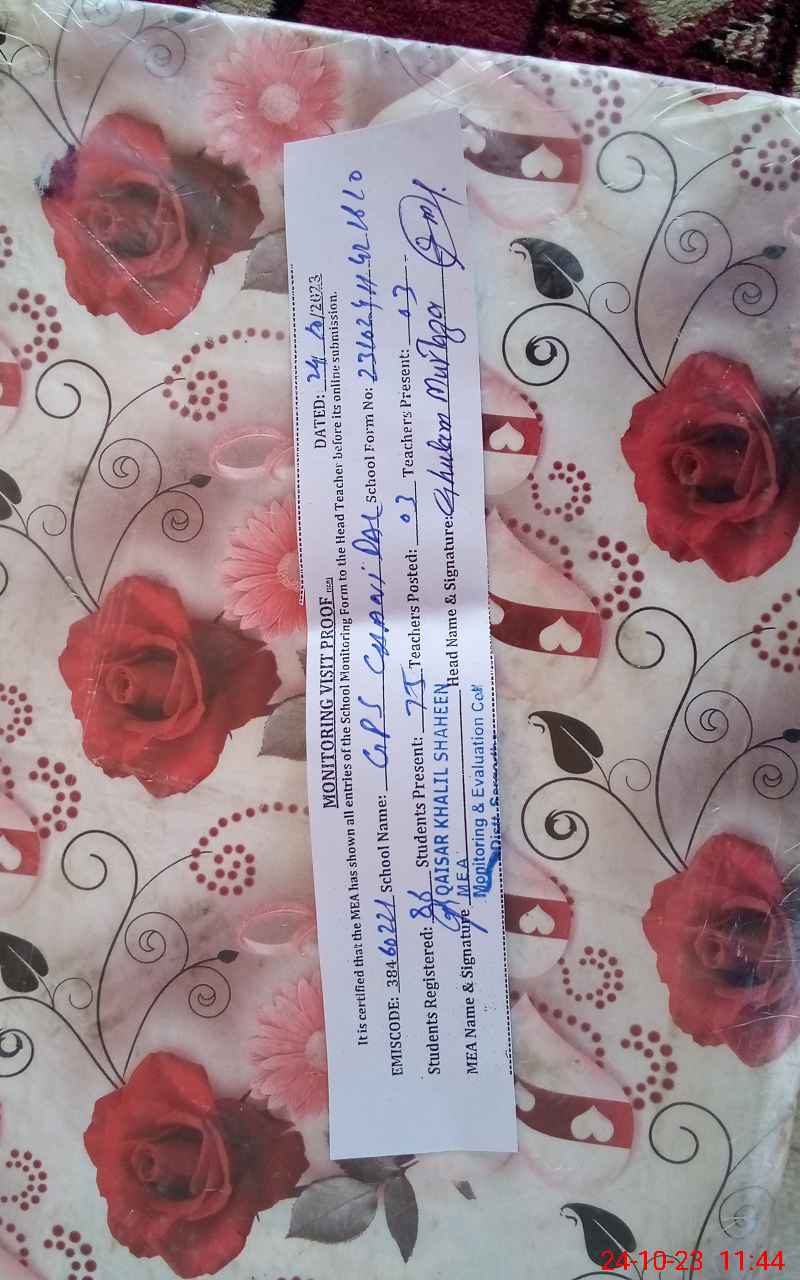 MONITORING VISIT PROOF
DATED: 24/10/2023
It is certified that the MEA has shown all entries of the School Monitoring Form to the Head Teacher before its online submission.
EMISCODE: 38460221 School Name: GPS CHANI DAL School Form No:
Students Registered: 86 Students Present: 75 Teachers Posted: 03 Teachers Present: 03
MEA Name & Signature Head Name & Signature: Ghulam Murtaza
QAISAR KHALIL SHAHEEN
MEA
Monitoring & Evaluation Cell
Distt. Sargodha
24-10-23 11:44